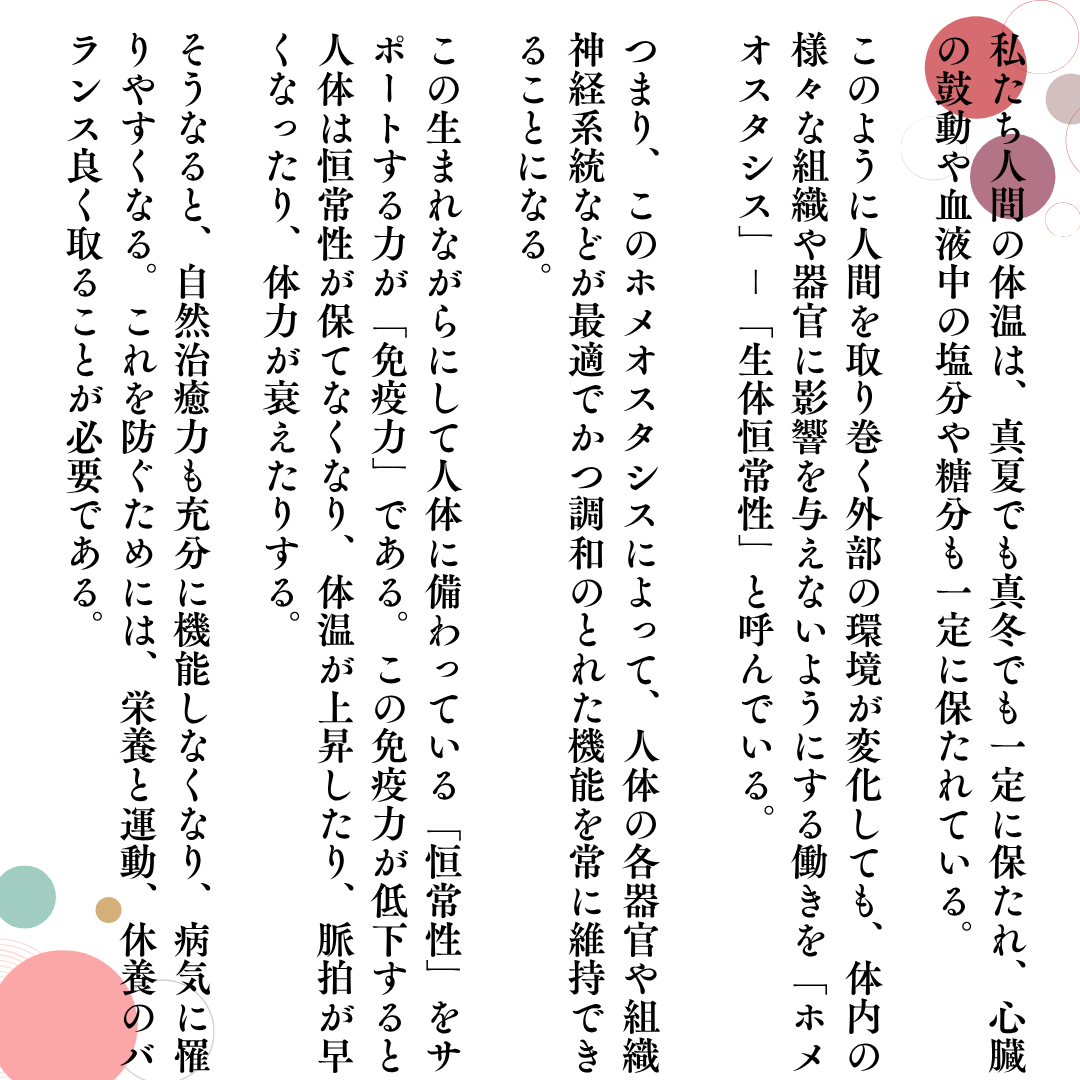 私たち人間の体温は、真夏でも真冬でも一定に保たれ、心臓
の鼓動や血液中の塩分や糖分も一定に保たれている。
このように人間を取り巻く外部の環境が変化しても、体内の
様々な組織や器官に影響を与えないようにする働きを「ホメ
オスタシス」―「生体恒常性」と呼んでいる。
つまり、このホメオスタシスによって、人体の各器官や組織
神経系統などが最適でかつ調和のとれた機能を常に維持でき
ることになる。
この生まれながらにして人体に備わっている「恒常性」をサ
ポートする力が「免疫力」である。この免疫力が低下すると
人体は恒常性が保てなくなり、体温が上昇したり、脈拍が早
くなったり、体力が衰えたりする。
そうなると、自然治癒力も充分に機能しなくなり、病気に罹
りやすくなる。これを防ぐためには、栄養と運動、休養のバ
ランス良く取ることが必要である。